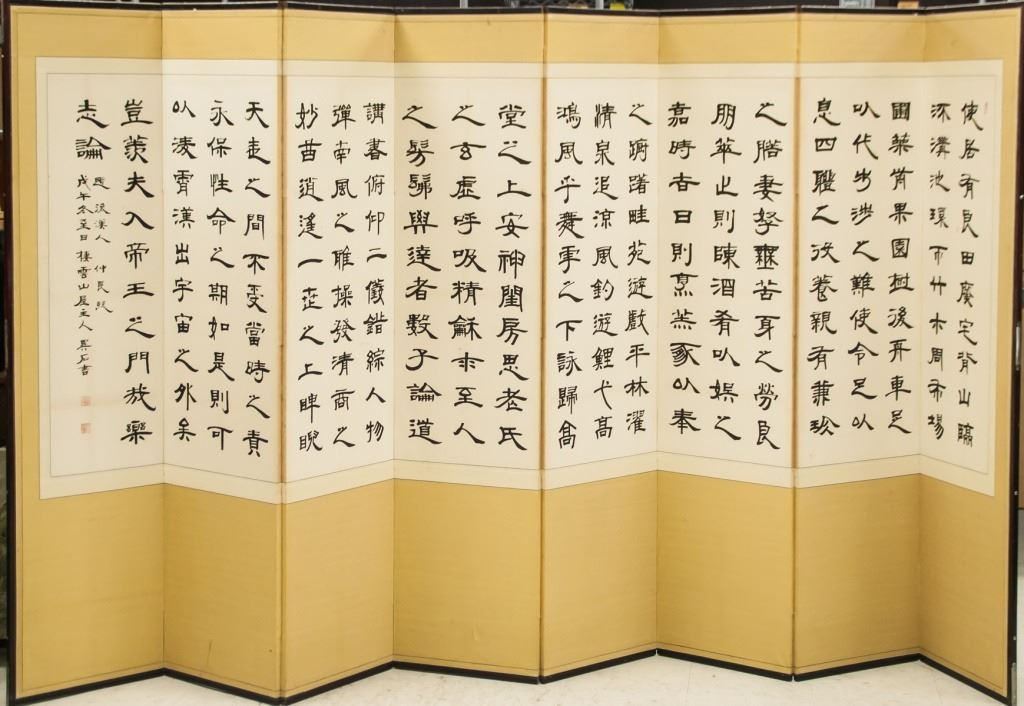 使居有良田廣宅背山臨
流溝池環匝竹木周布場
圃築前果園樹後舟車足
以代步涉之難使令足以
息四體之役養親有兼珍
之膳妻孥無苦身之勞良
朋萃止則陳酒肴以娛之
嘉時吉日則烹羔豚以奉
之躊躇畦苑遊戲平林濯
清泉追涼風釣遊鯉弋高
鴻風乎舞雩之下詠歸高
堂之上安神閨房思老氏
之玄虛呼吸精龢求至人
之髣髴與達者數子論道
講書俯仰二儀錯綜人物
彈南風之雅操發清商之
妙曲逍遙一世之上睥睨
天地之間不受當時之責
永保性命之期如是則可
以凌霄漢出宇宙之外矣
豈羨夫入帝王之門哉樂
志論
後漢人 仲長統
戊午冬至日棲雲山居主人 石書